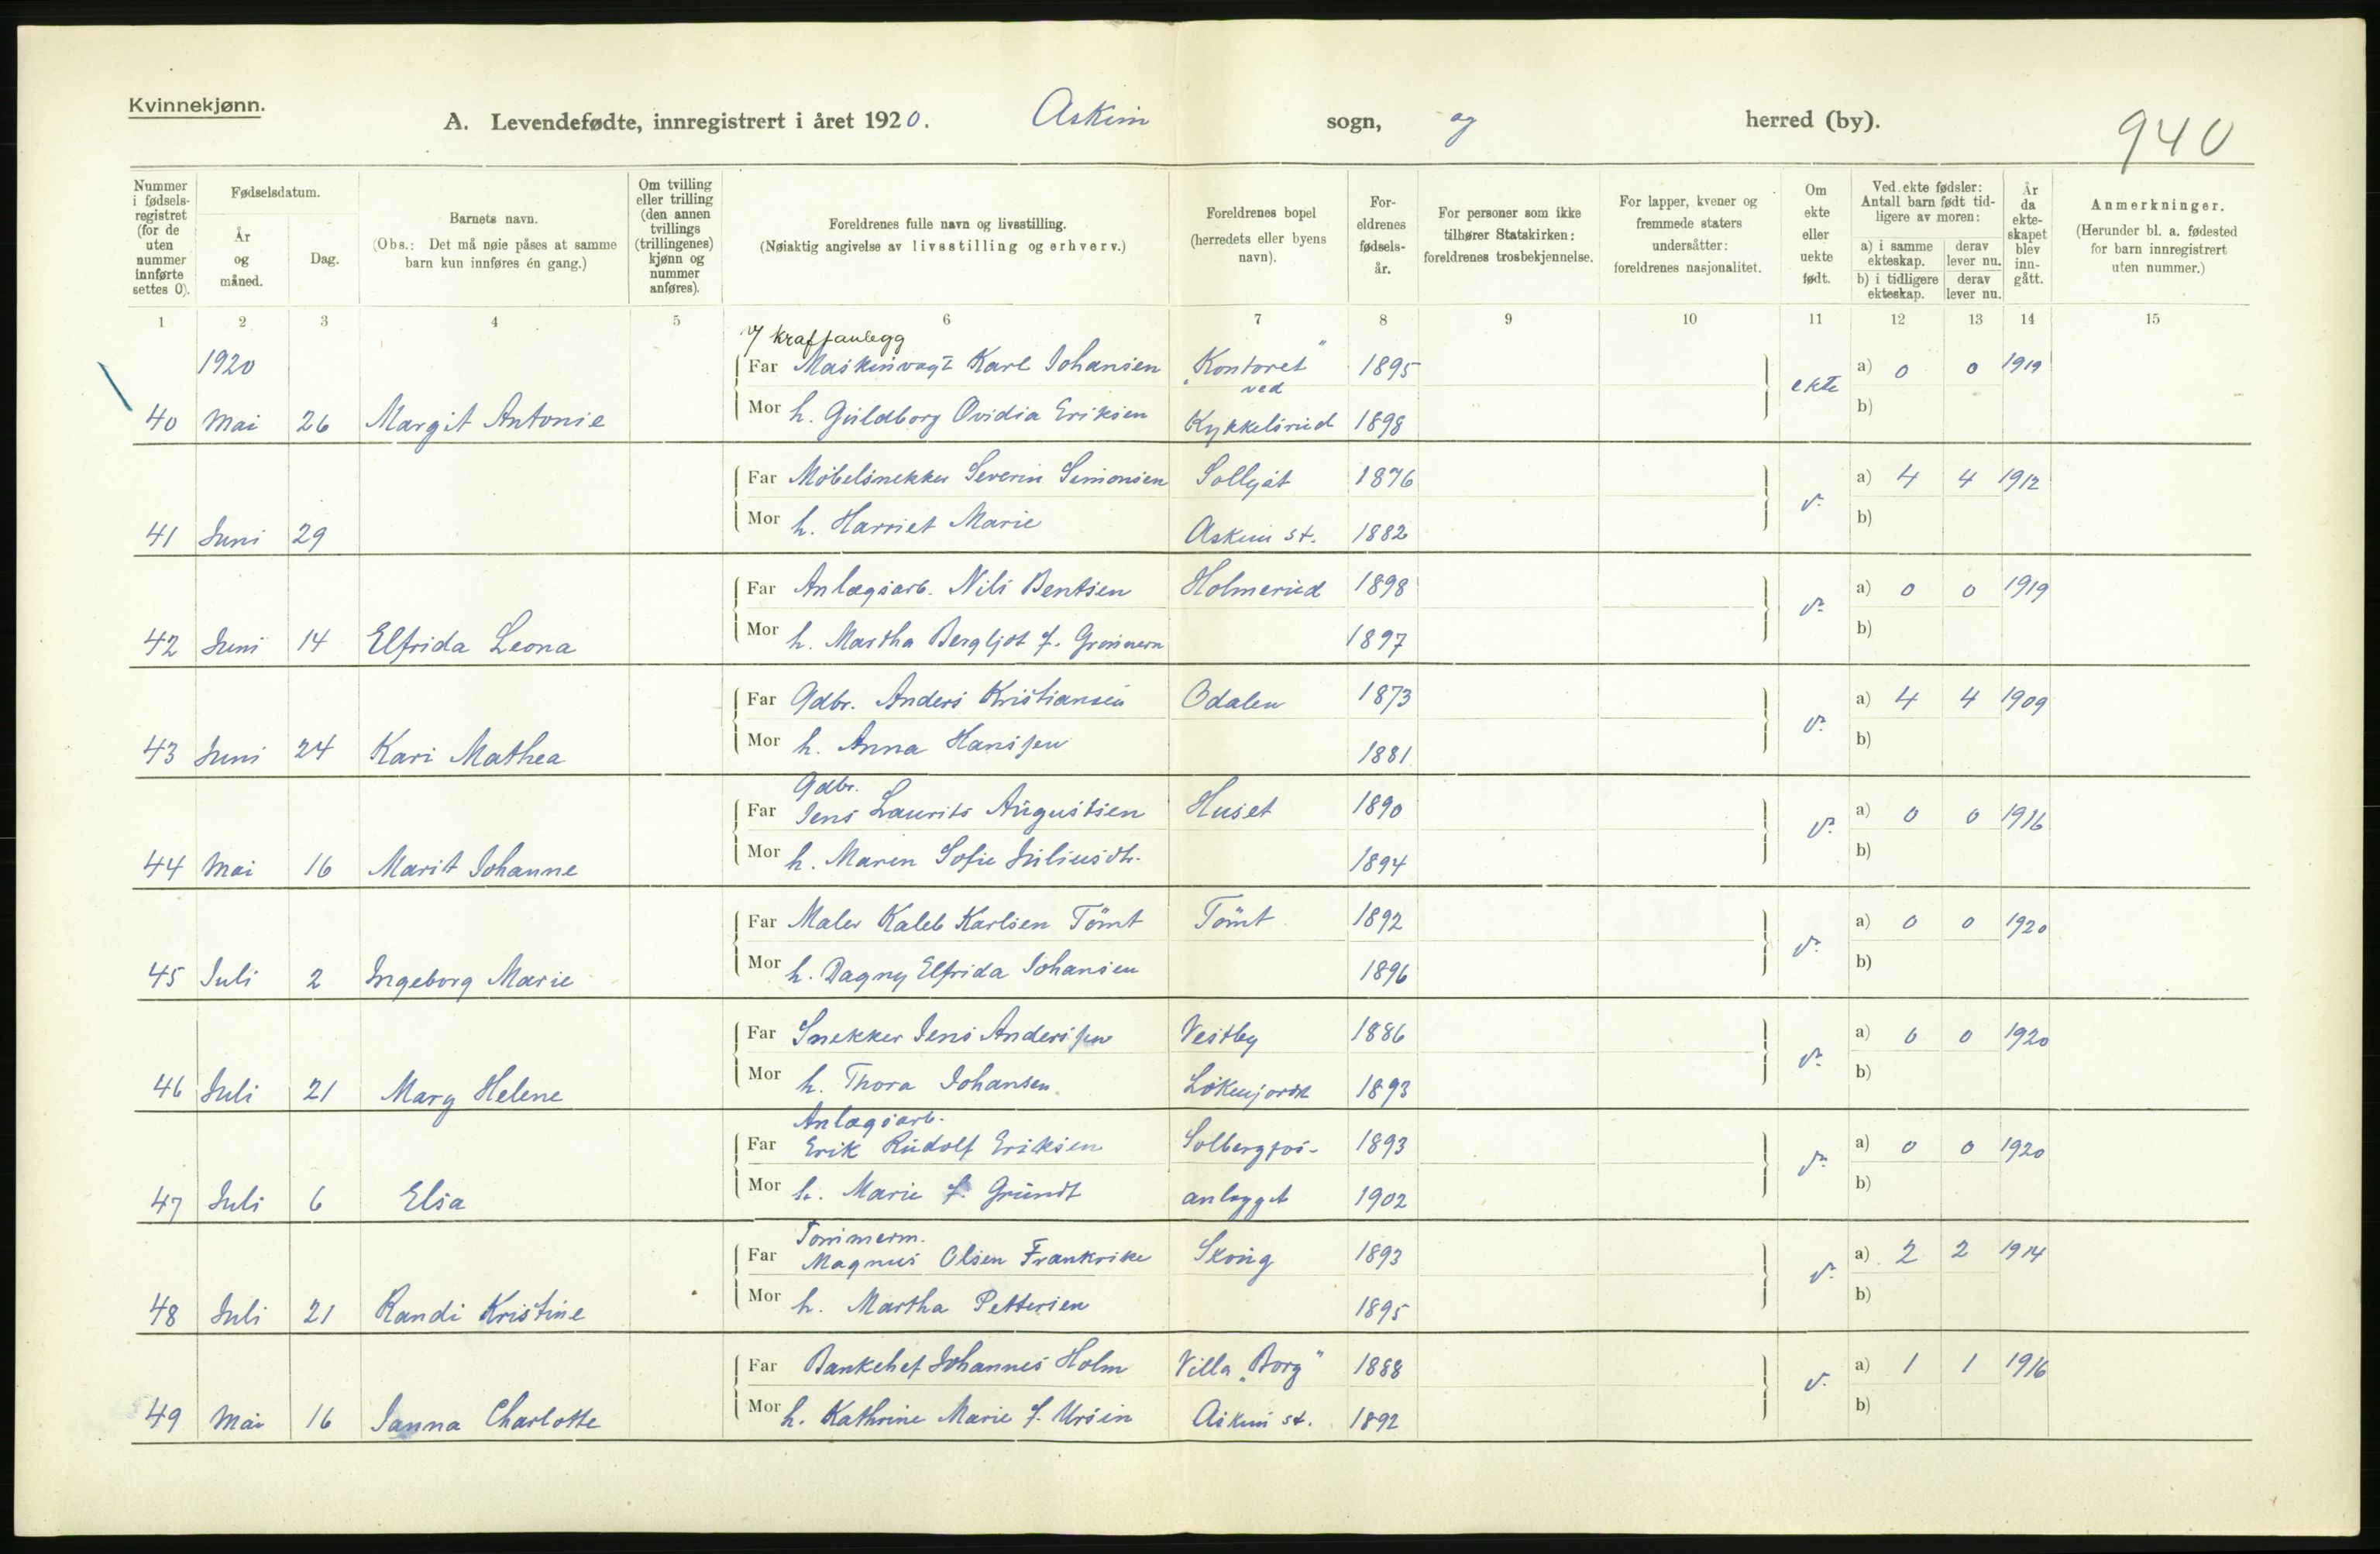 Kvinnekjønn.
A. Levendefødte, innregistrert i året 1920. Askim sogn, og herred (by). 940
Nummer i fødselsregistret (for de uten nummer innførte settes 0).
Fødselsdatum.
År og måned.
Dag.
Barnets navn.
(Obs.: Det må nøie påses at samme barn kun innføres én gang.)
Om tvilling eller trilling (den annen tvillings (trillingenes) kjønn og nummer anføres).
Foreldrenes fulle navn og livsstilling.
(Nøiaktig angivelse av livsstilling og erhverv.)
Foreldrenes bopel (herredets eller byens navn).
Foreldrenes fødselsår.
For personer som ikke tilhører Statskirken: foreldrenes trosbekjennelse.
For lapper, kvener og fremmede staters undersåtter: foreldrenes nasjonalitet.
Om ekte eller uekte født.
Ved ekte fødsler: Antall barn født tidligere av moren:
a) i samme ekteskap. derav lever nu.
b) i tidligere ekteskap. derav lever nu.
År da ekteskapet blev inngått.
Anmerkninger.
(Herunder bl. a. fødested for barn innregistrert uten nummer.)
1 2 3 4 5 6 7 8 9 10 11 12 13 14 15
v/ kraftanlegg
1920 Far Maskinvagt Karl Johansen "Kontoret" 1895 ekte a) 0 0 1919
ved
40 Mai 26 Margit Antonie Mor h. Guldborg Ovidia Eriksen Kykkelsrud 1898 b)
Far Møbelsnekker Severin Simonsen Solligåt 1876 d° a) 4 4 1912
41 Juni 29 Mor h. Harriet Marie Askim st. 1882 b)
Far Anlægsarb. Nils Bentsen Holmerud 1898 d° a) 0 0 1919
42 Juni 14 Elfrida Leona Mor h. Martha Bergljot f. Grønnern 1897 b)
Far Gdbr. Anders Kristiansen Odalen 1873 d° a) 4 4 1909
43 Juni 24 Kari Mathea Mor h. Anna Hanssen 1881 b)
Gdbr.
Far Jens Laurits Augustsen Huset 1890 d° a) 0 0 1916
44 Mai 16 Marit Johanne Mor h. Maren Sofie Juliusdt. 1894 b)
Far Maler Kaleb Karlsen Tömt Tömt 1892 d° a) 0 0 1920
45 Juli 2 Ingeborg Marie Mor h. Dagny Elfrida Johansen 1896 b)
Far Snekker Jens Anderssen Vestby 1886 d° a) 0 0 1920
46 Juli 21 Mary Helene Mor h. Thora Johansen Løkenjordet 1893 b)
Anlægsarb.
Far Erik Rudolf Eriksen Solbergfos- 1893 d° a) 0 0 1920
47 Juli 6 Elsa Mor h. Marie f. Grundt anlegget 1902 b)
Tømmerm.
Far Magnus Olsen Frankrike Skong 1893 d° a) 2 2 1914
48 Juli 21 Randi Kristine Mor h. Martha Pettersen 1895 b)
Far Bankchef Johannes Holm Villa "Borg" 1888 d° a) 1 1 1916
49 Mai 16 Janna Charlotte Mor h. Kathrine Marie f. Ursin Askim st. 1892 b)